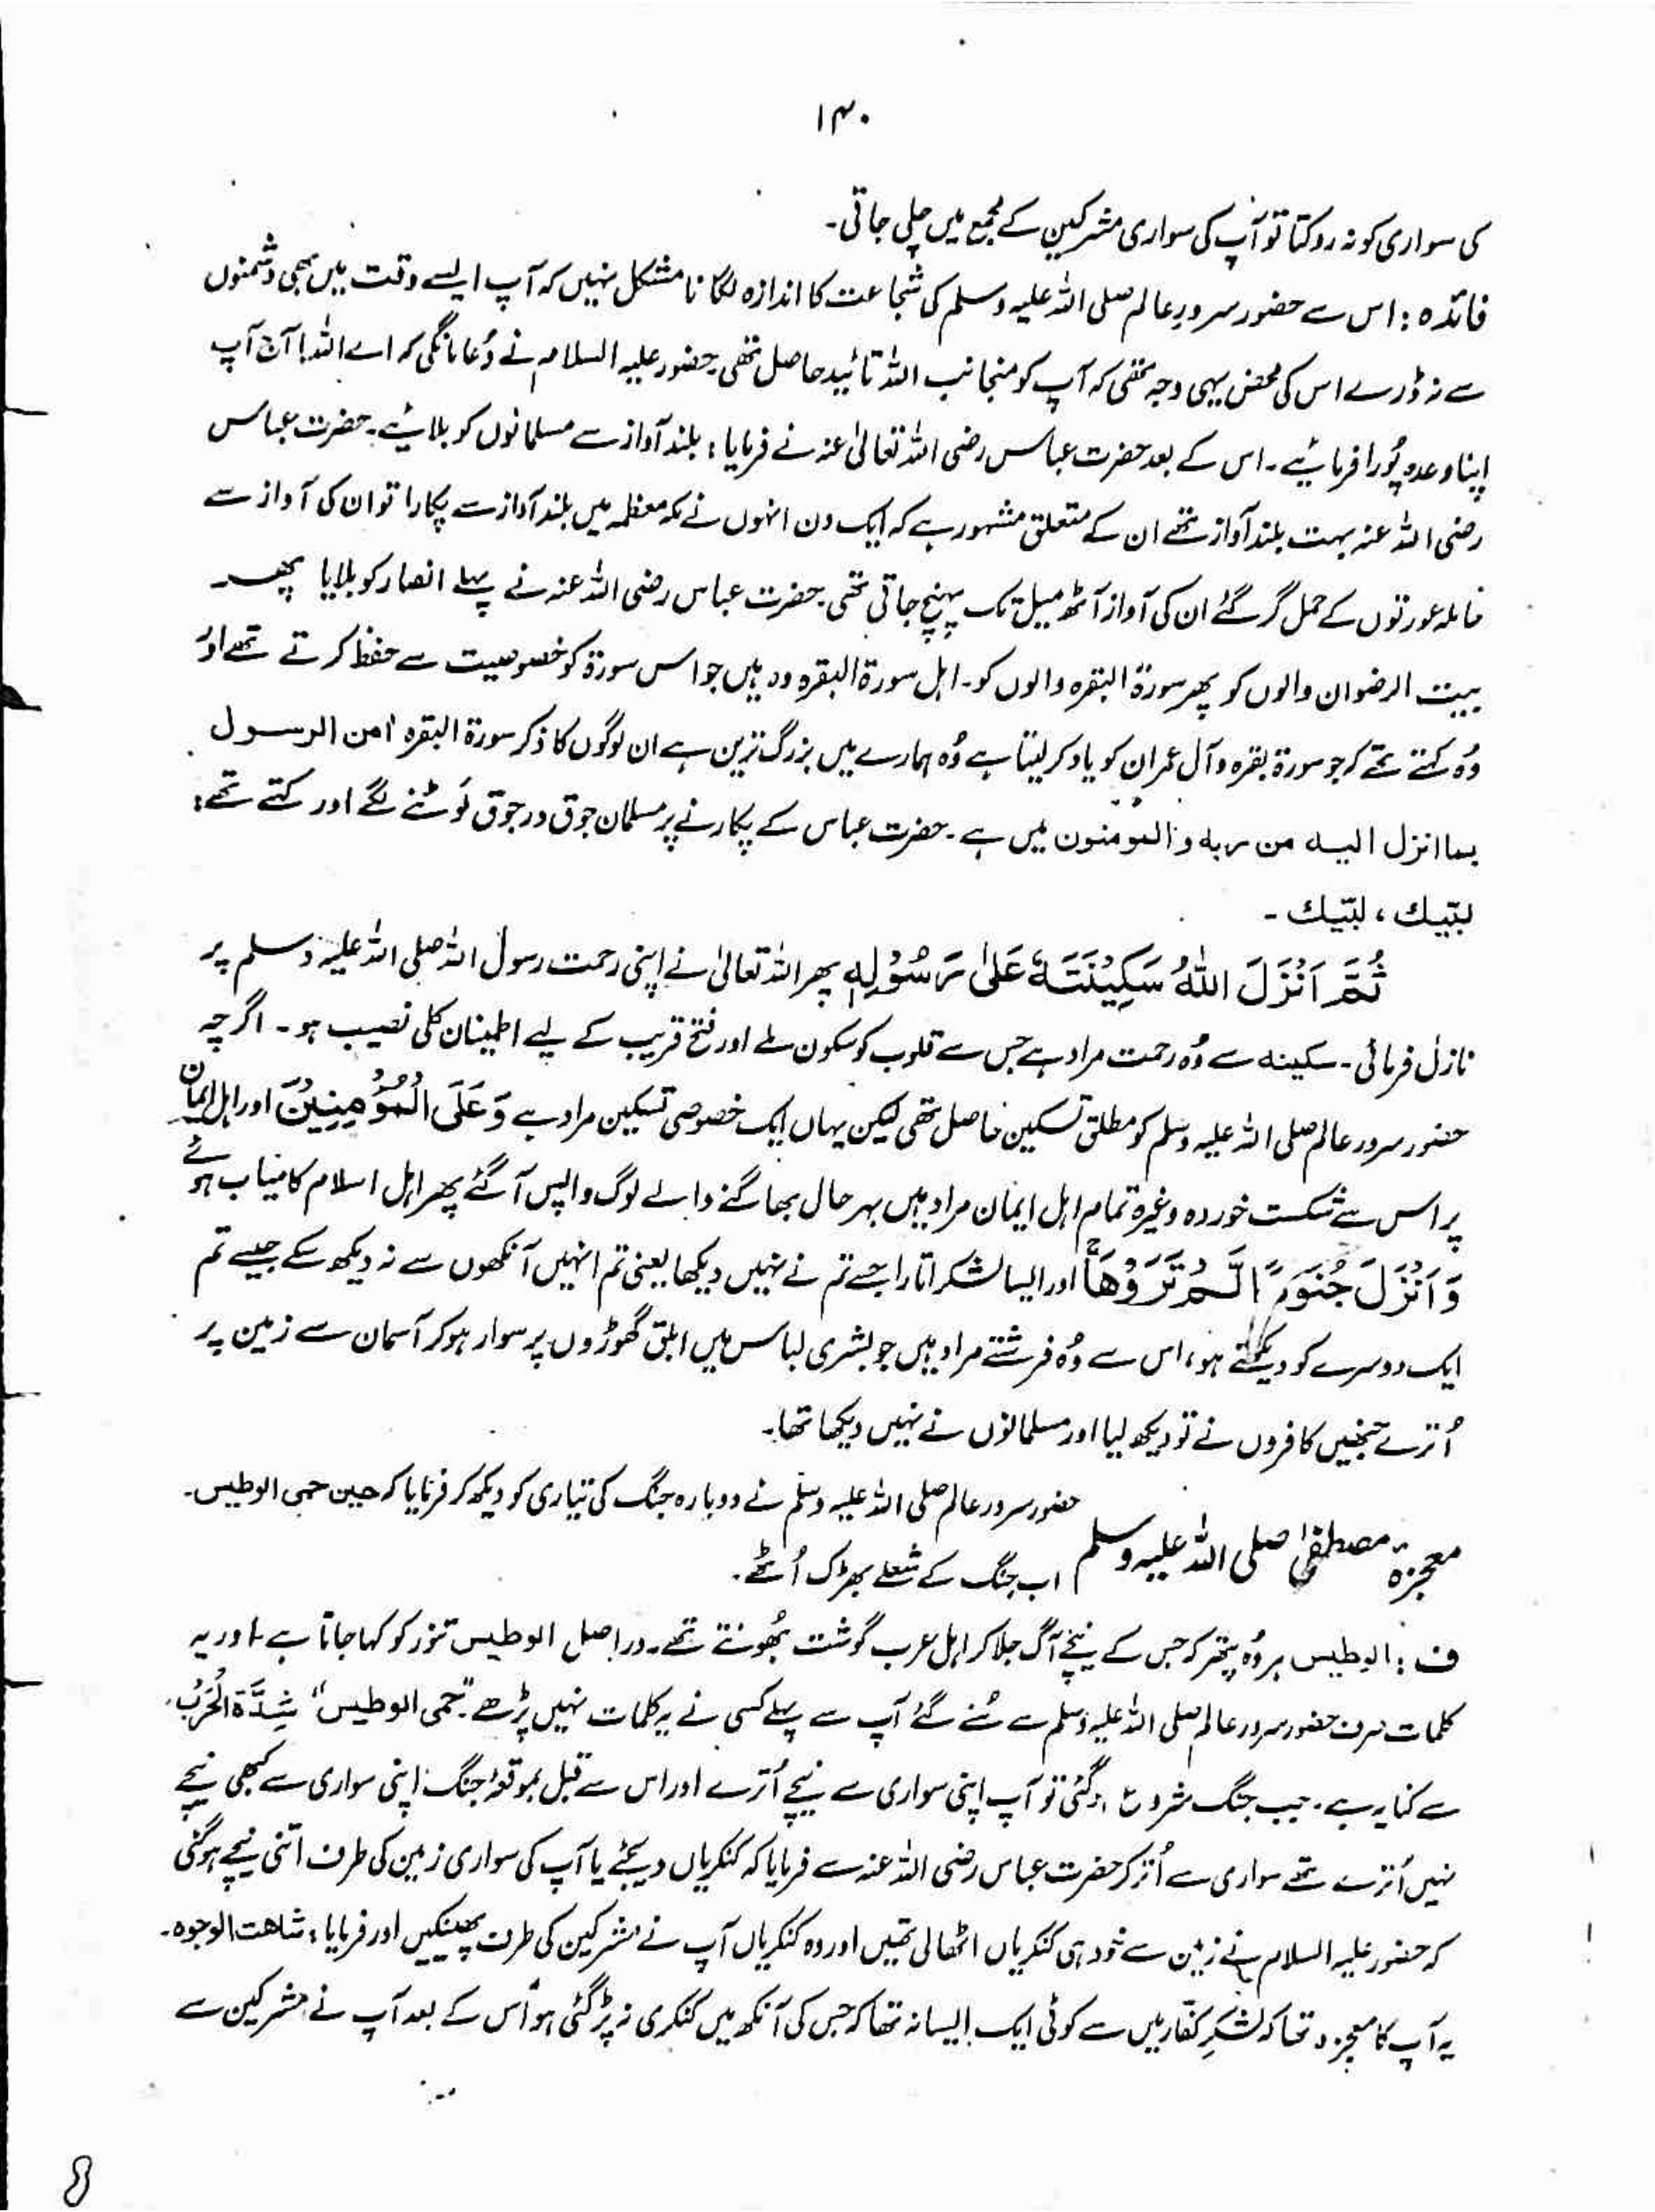 ۱۴۰
کی سواری کو نہ روکتا تو آپ کی سواری مشرکین کے مجمع میں چلی جاتی۔
فائدہ : اس سے حضور سرورِ عالم صلی اللہ علیہ وسلم کی شجاعت کا اندازہ لگانا مشکل نہیں کہ آپ ایسے وقت میں بھی دشمنوں
سے نہ ڈرے اس کی محض یہی وجہ تھی کہ آپ کو منجانب اللہ تائید حاصل تھی۔ حضور علیہ السلام نے دُعا مانگی کہ اے اللہ! آج آپ
اپنا وعدہ پُورا فرمائیے۔ اس کے بعد حضرت عباس رضی اللہ تعالیٰ عنہ نے فرمایا : بلند آواز سے مسلمانوں کو بلائیے۔ حضرت عباس
رضی اللہ عنہ بہت بلند آواز تھے ان کے متعلق مشہور ہے کہ ایک دن انہوں نے مکہ معظمہ میں بلند آواز سے پکارا تو ان کی آواز سے
حاملہ عورتوں کے حمل گر گئے ان کی آواز آٹھ میل تک پہنچ جاتی تھی۔ حضرت عباس رضی اللہ عنہ نے پہلے انصار کو بلایا پھر
بیت الرضوان والوں کو پھر سورۃ البقرہ والوں کو۔ اہل سورۃ البقرہ وہ ہیں جو اس سورۃ کو خصوصیت سے حفظ کرتے تھے اور
وُہ کہتے تھے کہ جو سورۃ بقرہ و آل عمران کو یاد کر لیتا ہے وُہ ہمارے میں بزرگ ترین ہے ان لوگوں کا ذکر سورۃ البقرہ اٰمن الرسول
بما انزل الیہ من ربہ والمؤمنون میں ہے۔ حضرت عباس کے پکارنے پر مسلمان جوق در جوق لَوٹنے لگے اور کہتے تھے :
لبّیك ، لبّیك ۔
ثُمَّ اَنْزَلَ اللّٰهُ سَكِيْنَتَهٗ عَلٰى رَسُوْلِهٖ پھر اللہ تعالیٰ نے اپنی رحمت رسول اللہ صلی اللہ علیہ وسلم پر
نازل فرمائی۔ سکینہ سے وُہ رحمت مراد ہے جس سے قلوب کو سکون ملے اور فتح قریب کے لیے اطمینان کلی نصیب ہو۔ اگرچہ
حضور سرور عالم صلی اللہ علیہ وسلم کو مطلق تسکین حاصل تھی لیکن یہاں ایک خصوصی تسکین مراد ہے وَعَلَى الْمُؤْمِنِيْنَ اور اہل ایمان
پر اس سے شکست خوردہ وغیرہ تمام اہل ایمان مراد ہیں بہرحال بھاگنے والے لوگ واپس آگئے پھر اہل اسلام کامیاب ہوئے
وَاَنْزَلَ جُنُوْدًا لَّمْ تَرَوْهَا ۚ اور ایسا لشکر اتارا جسے تم نے نہیں دیکھا یعنی تم انہیں آنکھوں سے نہ دیکھ سکے جیسے تم
ایک دوسرے کو دیکھتے ہو، اس سے وُہ فرشتے مراد ہیں جو بشری لباس میں ابلق گھوڑوں پر سوار ہو کر آسمان سے زمین پر
اُترے جنھیں کافروں نے تو دیکھ لیا اور مسلمانوں نے نہیں دیکھا تھا۔
معجزہ مصطفیٰ صلی اللہ علیہ وسلم حضور سرور عالم صلی اللہ علیہ وسلم نے دوبارہ جنگ کی تیاری کو دیکھ کر فرمایا کہ حین حمی الوطیس۔
اب جنگ کے شعلے بھڑک اُٹھے۔
ف : الوطیس ہر وُہ پتھر کہ جس کے نیچے آگ جلا کر اہل عرب گوشت بھُونتے تھے۔ دراصل الوطیس تنور کو کہا جاتا ہے اور یہ
کلمات صرف حضور سرور عالم صلی اللہ علیہ وسلم سے سُنے گئے آپ سے پہلے کسی نے یہ کلمات نہیں پڑھے۔ "حمی الوطیس" شِدَّۃُ الْحَرْبِ
سے کنایہ ہے۔ جب جنگ شروع ہوگئی تو آپ اپنی سواری سے نیچے اُترے اور اس سے قبل بموقعۂ جنگ اپنی سواری سے کبھی نیچے
نہیں اُترے تھے سواری سے اُتر کر حضرت عباس رضی اللہ عنہ سے فرمایا کہ کنکریاں دیجئے یا آپ کی سواری زمین کی طرف اتنی نیچے ہوگئی
کہ حضور علیہ السلام نے زمین سے خود ہی کنکریاں اٹھالی تھیں اور وہ کنکریاں آپ نے مشرکین کی طرف پھینکیں اور فرمایا : شاھت الوجوہ۔
یہ آپ کا معجزہ تھا کہ لشکرِ کفّار میں سے کوئی ایک ایسا نہ تھا کہ جس کی آنکھ میں کنکری نہ پڑ گئی ہو اُس کے بعد آپ نے مشرکین سے